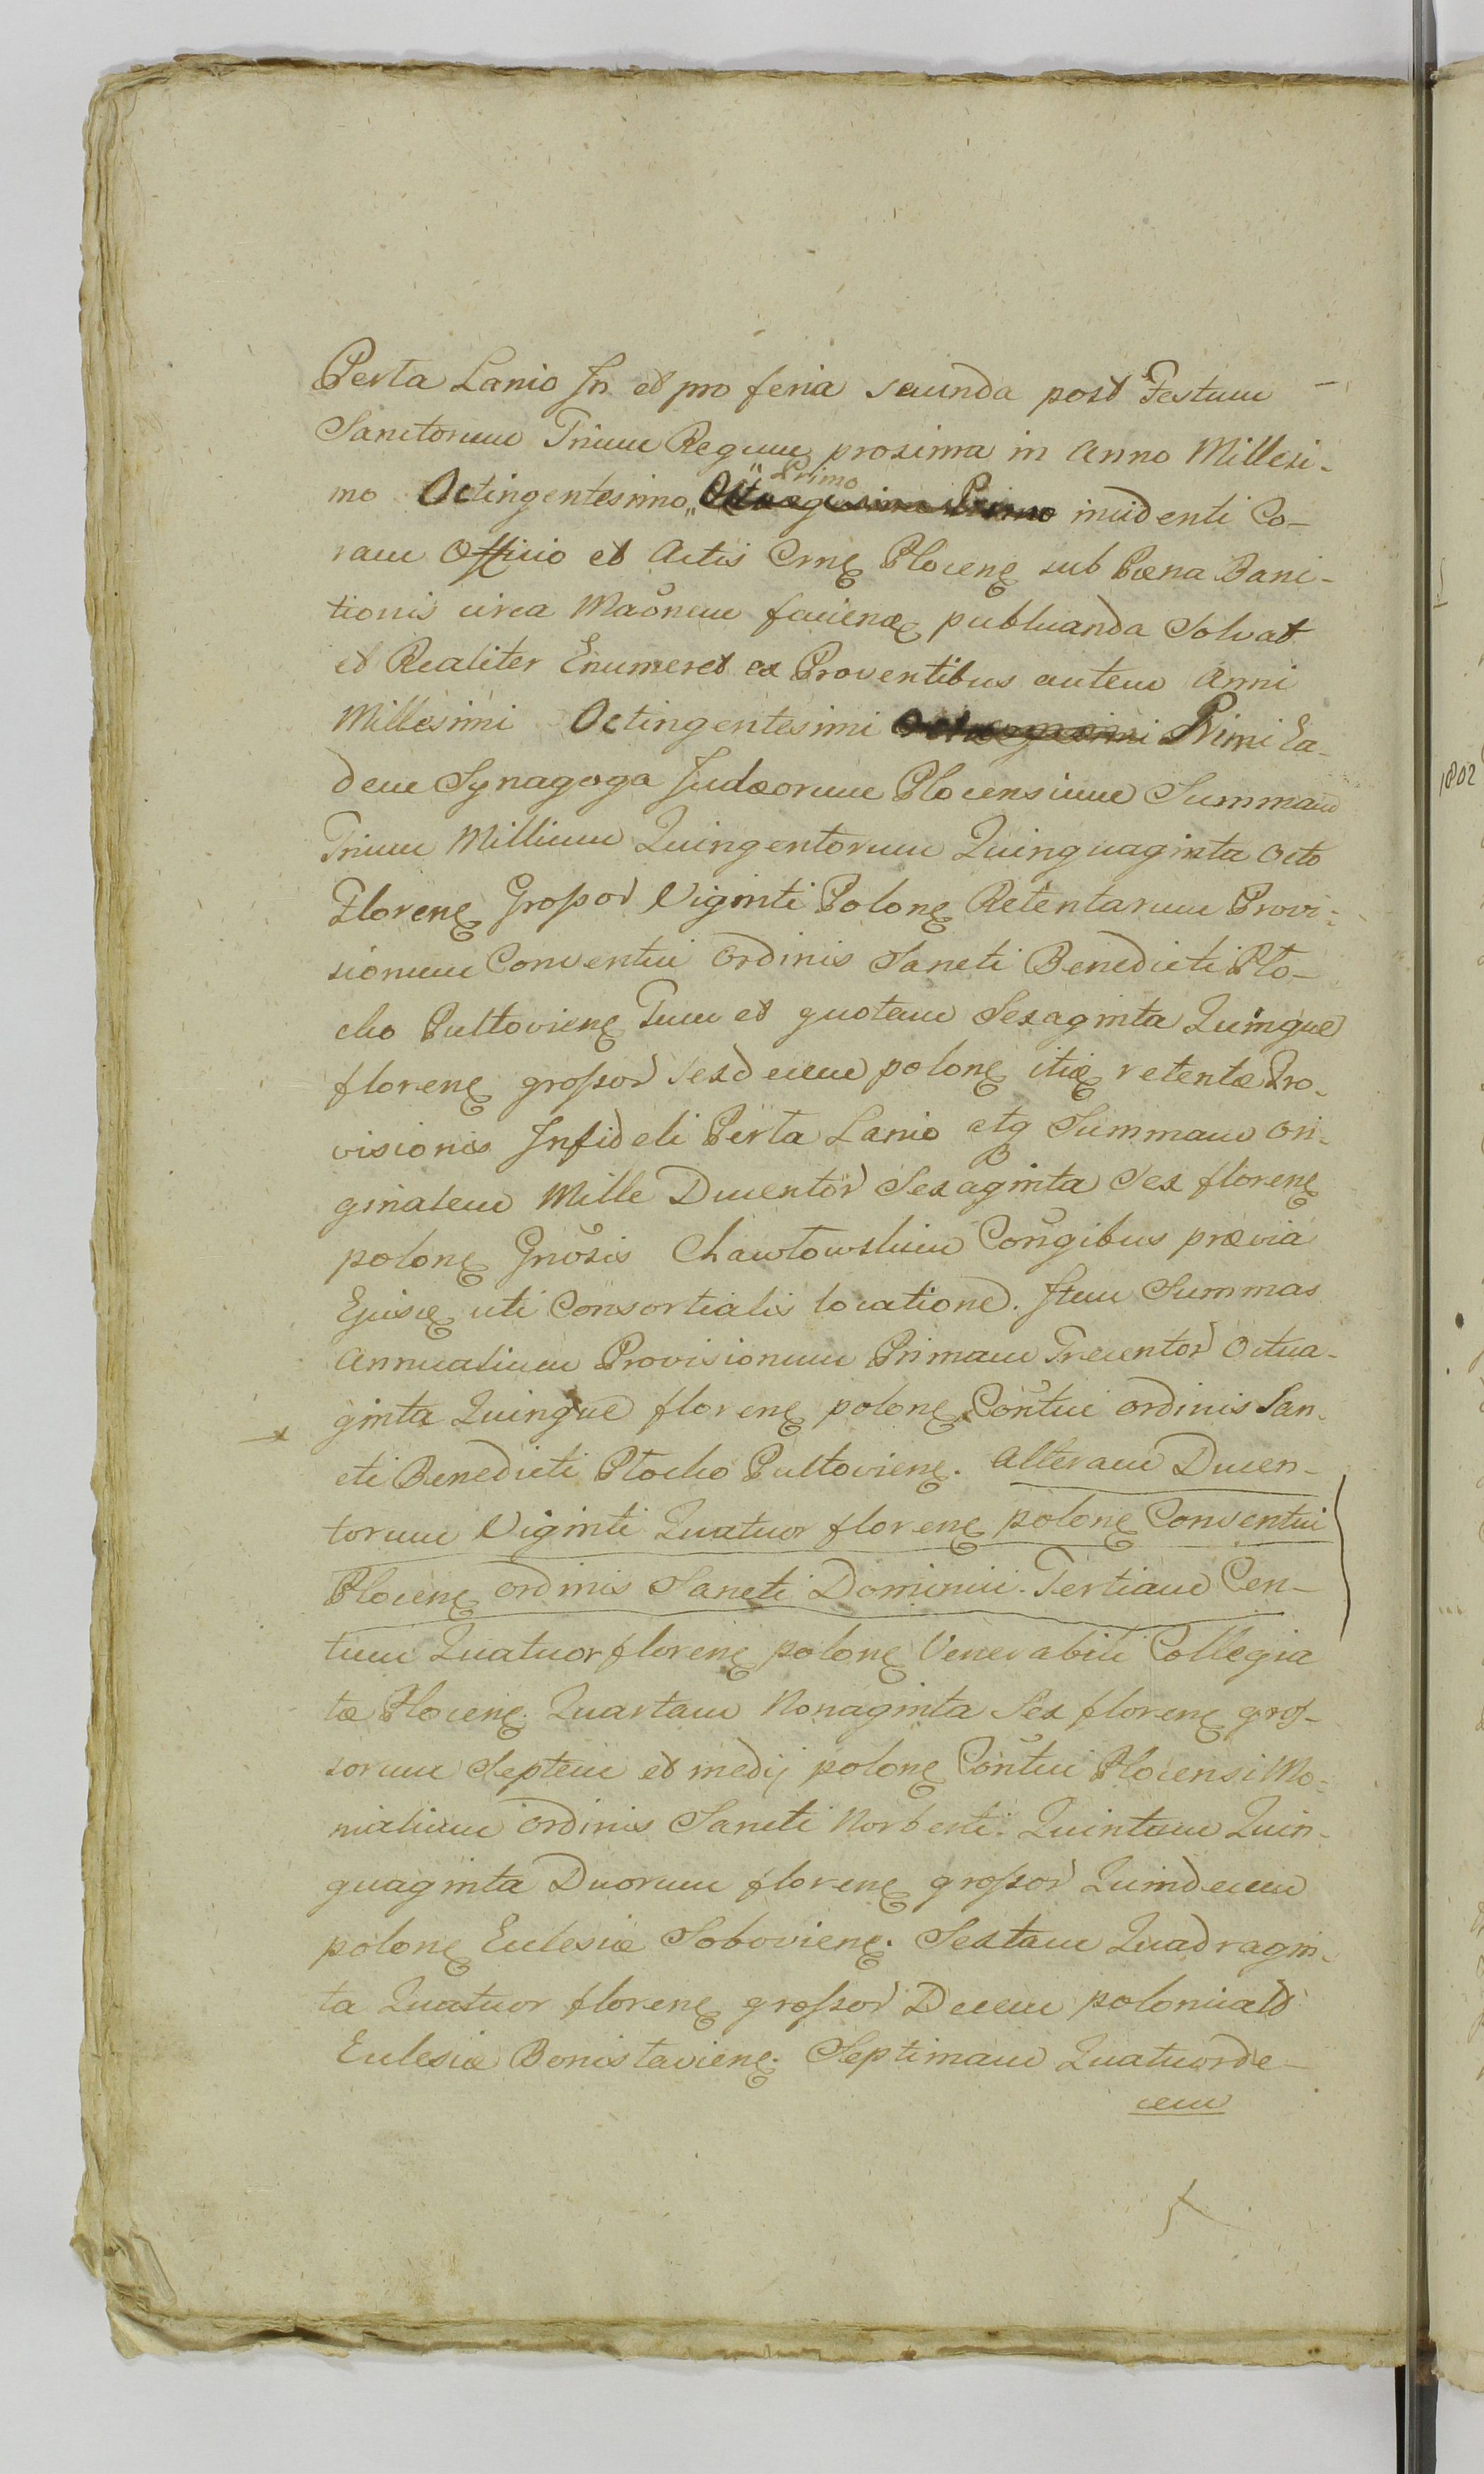 Perta Lanio In et pro feria secunda post Festum
Sanctorum Trium Regum proxima in Anno Millesi-
mo Octingentesimo „ Primo incidenti Co-
ram Officio et Actis Crnę Plocenę sub Pœna Bani-
tionis circa Maōnem facienę publicanda Solvat
et Realiter Enumeret ex Proventibus autem Anni
Millesimi Octingentesimi Primi Ea-
dem Synagoga Judæorum Plocensium Summam
Trium Millium Quingentorum Quinquaginta Octo
Florenę Grossor Viginti Polonę Retentarum Provi-
sionum Conventui Ordinis Sancti Benedicti Pło-
cko Pułtovienę Tum et quotam Sexaginta Quinque
florenę grossor Sexdecem polonę itię retentæ Pro-
visionis Infideli Perta Lanio atq Summam Ori-
ginalem Mille Ducentor Sexaginta Sex florenę
polonę Gnōsis Chawłowskim Cōngibus prævia
Ejusę uti Consortialis locatione. Item Summas
Annualium Provisionum Primam Trecentor Octua-
ginta Quinque florenę polonę Cōntui ordinis San-
cti Benedicti Płocko Pułtovienę. Alteram Ducen-
torum Viginti Quatuor florenę polonę Conventui
Plocenę ordinis Sancti Dominici. Tertiam Cen-
tum Quatuor florenę polonę Venerabili Collegia
tæ Plocenę. Quartam Nonaginta Sex florenę gros-
sorum Septem et medij polonę Cōntui Plocensi Mo-
nialium ordinis Sancti Norberti. Quintam Quin-
quaginta Duorum florenę grossor Quindecem
polonę Ecclesiæ Sobovienę. Sextam Quadragin-
ta Quatuor florenę grossor Decem polonicald
Ecclesiæ Bonisłavienę. Septimam Quatuorde-
cem
1802